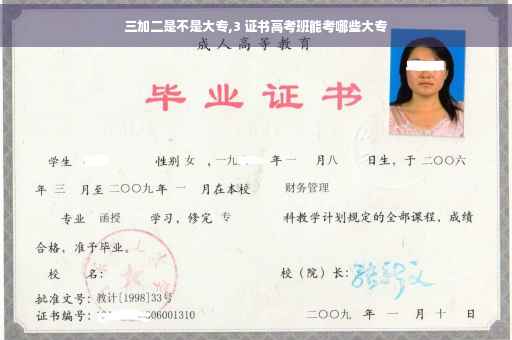 三加二是不是大专,3 证书高考班能考哪些大专
成人高等教育
毕业证书
学生 性别 女 ,一九 年 一 月八 日生，于 二〇〇六
年 三 月至 二〇〇九 年 一 月在本校 财务管理
专业 函授 学习，修完 专 科教学计划规定的全部课程，成绩
合格，准予毕业。
校 名： 校（院）长：
批准文号：教计[1998]33号
证书编号： 06001310 二〇〇九 年 一 月 十 日